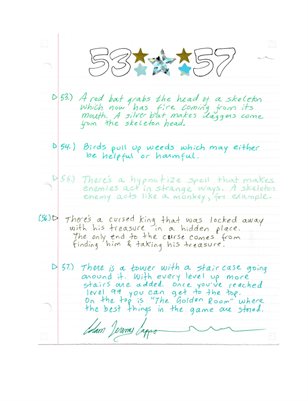 53 57
53.) A red bat grabs the head of a skeleton
which now has fire coming from its
mouth. A silver bat makes daggers come
from the skeleton head.
54.) Birds pull up weeds which may either
be helpful or harmful.
There's a hypnotize spell that makes
enemies act in strange ways. A skeleton
enemy acts like a monkey, for example.
(56) There's a cursed king that was locked away
with his treasure in a hidden place.
The only end to the curse comes from
finding him & taking his treasure.
57.) There is a tower with a staircase going
around it. With every level up more
stairs are added. Once you've reached
level 99 you can get to the top.
On the top is "The Golden Room" where
the best things in the game are stored.
Adam